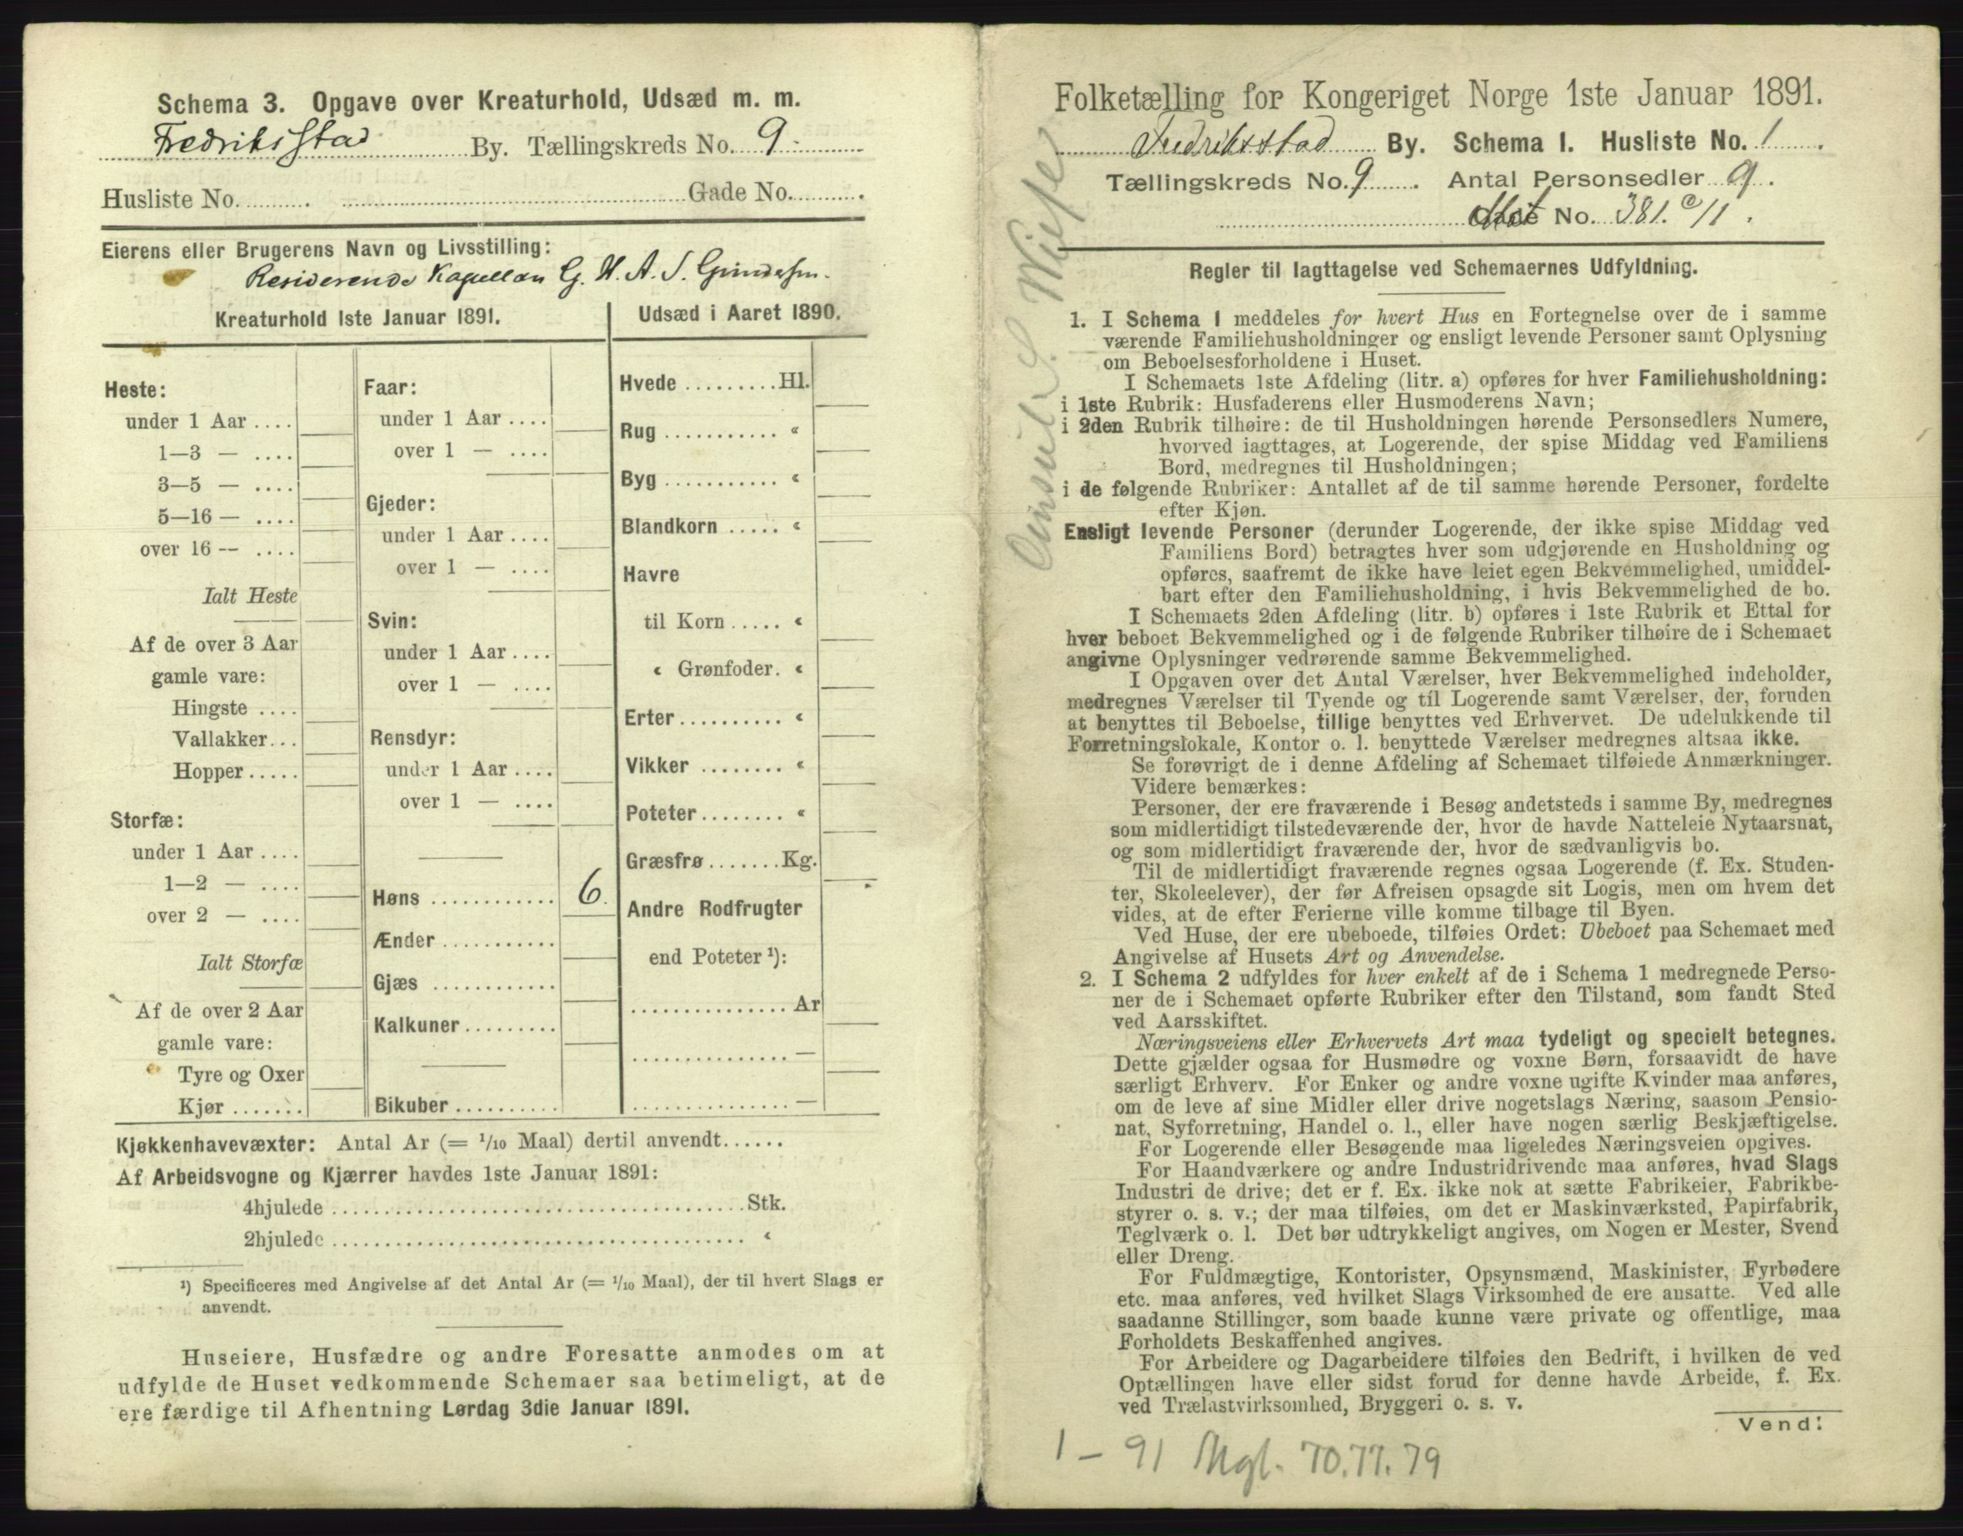 Schema 3. Opgave over Kreaturhold, Udsæd m. m.
Fredriksstad By. Tællingskreds No. 9.
Husliste No. . Gade No. .
Eierens eller Brugerens Navn og Livsstilling:
Residerende Kapellan G. H. A. S.
Kreaturhold 1ste Januar 1891.
Heste:
under 1 Aar ....
1—3 — ....
3—5 — ....
5—16 — ....
over 16 — ....
Ialt Heste
Af de over 3 Aar
gamle vare:
Hingste ....
Vallakker...
Hopper .....
Storfæ:
under 1 Aar ....
1—2 — ....
over 2 — ....
Ialt Storfæ
Af de over 2 Aar
gamle vare:
Tyre og Oxer
Kjør .......
Faar:
under 1 Aar ....
over 1 — ....
Gjeder:
under 1 Aar ....
over 1 — ....
Svin:
under 1 Aar ....
over 1 — ....
Rensdyr:
under 1 Aar ....
over 1 — ....
Høns ............ 6.
Ænder ...........
Gjæs ............
Kalkuner .........
Bikuber ..........
Udsæd i Aaret 1890.
Hvede .........Hl.
Rug ........... «
Byg ........... «
Blandkorn ..... «
Havre
til Korn ..... «
« Grønfoder. «
Erter .......... «
Vikker ........ «
Poteter ........ «
Græsfrø .......Kg.
Andre Rodfrugter
end Poteter ¹):
............... Ar
............... —
............... —
Kjøkkenhavevæxter: Antal Ar (= 1/10 Maal) dertil anvendt......
Af Arbeidsvogne og Kjærrer havdes 1ste Januar 1891:
4hjulede ...................................... Stk.
2hjulede ...................................... «
¹) Specificeres med Angivelse af det Antal Ar (= 1/10 Maal), der til hvert Slags er
anvendt.
Huseiere, Husfædre og andre Foresatte anmodes om at
udfylde de Huset vedkommende Schemaer saa betimeligt, at de
ere færdige til Afhentning Lørdag 3die Januar 1891.
Folketælling for Kongeriget Norge 1ste Januar 1891.
Fredriksstad By. Schema I. Husliste No. 1.
Tællingskreds No. 9. Antal Personsedler 9.
Gade No. 381.c/1.
Regler til Iagttagelse ved Schemaernes Udfyldning.
1. I Schema 1 meddeles for hvert Hus en Fortegnelse over de i samme
værende Familiehusholdninger og ensligt levende Personer samt Oplysning
om Beboelsesforholdene i Huset.
I Schemaets 1ste Afdeling (litr. a) opføres for hver Familiehusholdning:
i 1ste Rubrik: Husfaderens eller Husmoderens Navn;
i 2den Rubrik tilhøire: de til Husholdningen hørende Personsedlers Numere,
hvorved iagttages, at Logerende, der spise Middag ved Familiens
Bord, medregnes til Husholdningen;
i de følgende Rubriker: Antallet af de til samme hørende Personer, fordelte
efter Kjøn.
Ensligt levende Personer (derunder Logerende, der ikke spise Middag ved
Familiens Bord) betragtes hver som udgjørende en Husholdning og
opføres, saafremt de ikke have leiet egen Bekvemmelighed, umiddel-
bart efter den Familiehusholdning, i hvis Bekvemmelighed de bo.
I Schemaets 2den Afdeling (litr. b) opføres i 1ste Rubrik et Ettal for
hver beboet Bekvemmelighed og i de følgende Rubriker tilhøire de i Schemaet
angivne Oplysninger vedrørende samme Bekvemmelighed.
I Opgaven over det Antal Værelser, hver Bekvemmelighed indeholder,
medregnes Værelser til Tyende og til Logerende samt Værelser, der, foruden
at benyttes til Beboelse, tillige benyttes ved Erhvervet. De udelukkende til
Forretningslokale, Kontor o. l. benyttede Værelser medregnes altsaa ikke.
Se forøvrigt de i denne Afdeling af Schemaet tilføiede Anmærkninger.
Videre bemærkes:
Personer, der ere fraværende i Besøg andetsteds i samme By, medregnes
som midlertidigt tilstedeværende der, hvor de havde Natteleie Nytaarsnat,
og som midlertidigt fraværende der, hvor de sædvanligvis bo.
Til de midlertidigt fraværende regnes ogsaa Logerende (f. Ex. Studen-
ter, Skoleelever), der før Afreisen opsagde sit Logis, men om hvem det
vides, at de efter Ferierne ville komme tilbage til Byen.
Ved Huse, der ere ubeboede, tilføies Ordet: Ubeboet paa Schemaet med
Angivelse af Husets Art og Anvendelse.
2. I Schema 2 udfyldes for hver enkelt af de i Schema 1 medregnede Perso-
ner de i Schemaet opførte Rubriker efter den Tilstand, som fandt Sted
ved Aarsskiftet.
Næringsveiens eller Erhvervets Art maa tydeligt og specielt betegnes.
Dette gjælder ogsaa for Husmødre og voxne Børn, forsaavidt de have
særligt Erhverv. For Enker og andre voxne ugifte Kvinder maa anføres,
om de leve af sine Midler eller drive nogetslags Næring, saasom Pensio-
nat, Syforretning, Handel o. l., eller have nogen særlig Beskjæftigelse.
For Logerende eller Besøgende maa ligeledes Næringsveien opgives.
For Haandværkere og andre Industridrivende maa anføres, hvad Slags
Industri de drive; det er f. Ex. ikke nok at sætte Fabrikeier, Fabrikbe-
styrer o. s. v.; der maa tilføies, om det er Maskinværksted, Papirfabrik,
Teglværk o. l. Det bør udtrykkeligt angives, om Nogen er Mester, Svend
eller Dreng.
For Fuldmægtige, Kontorister, Opsynsmænd, Maskinister, Fyrbødere
etc. maa anføres, ved hvilket Slags Virksomhed de ere ansatte. Ved alle
saadanne Stillinger, som baade kunne være private og offentlige, maa
Forholdets Beskaffenhed angives.
For Arbeidere og Dagarbeidere tilføies den Bedrift, i hvilken de ved
Optællingen have eller sidst forud for denne havde Arbeide, f. Ex.
ved Trælastvirksomhed, Bryggeri o. s. v.
Vend:
1 – 91 Mgl. 70.77.79